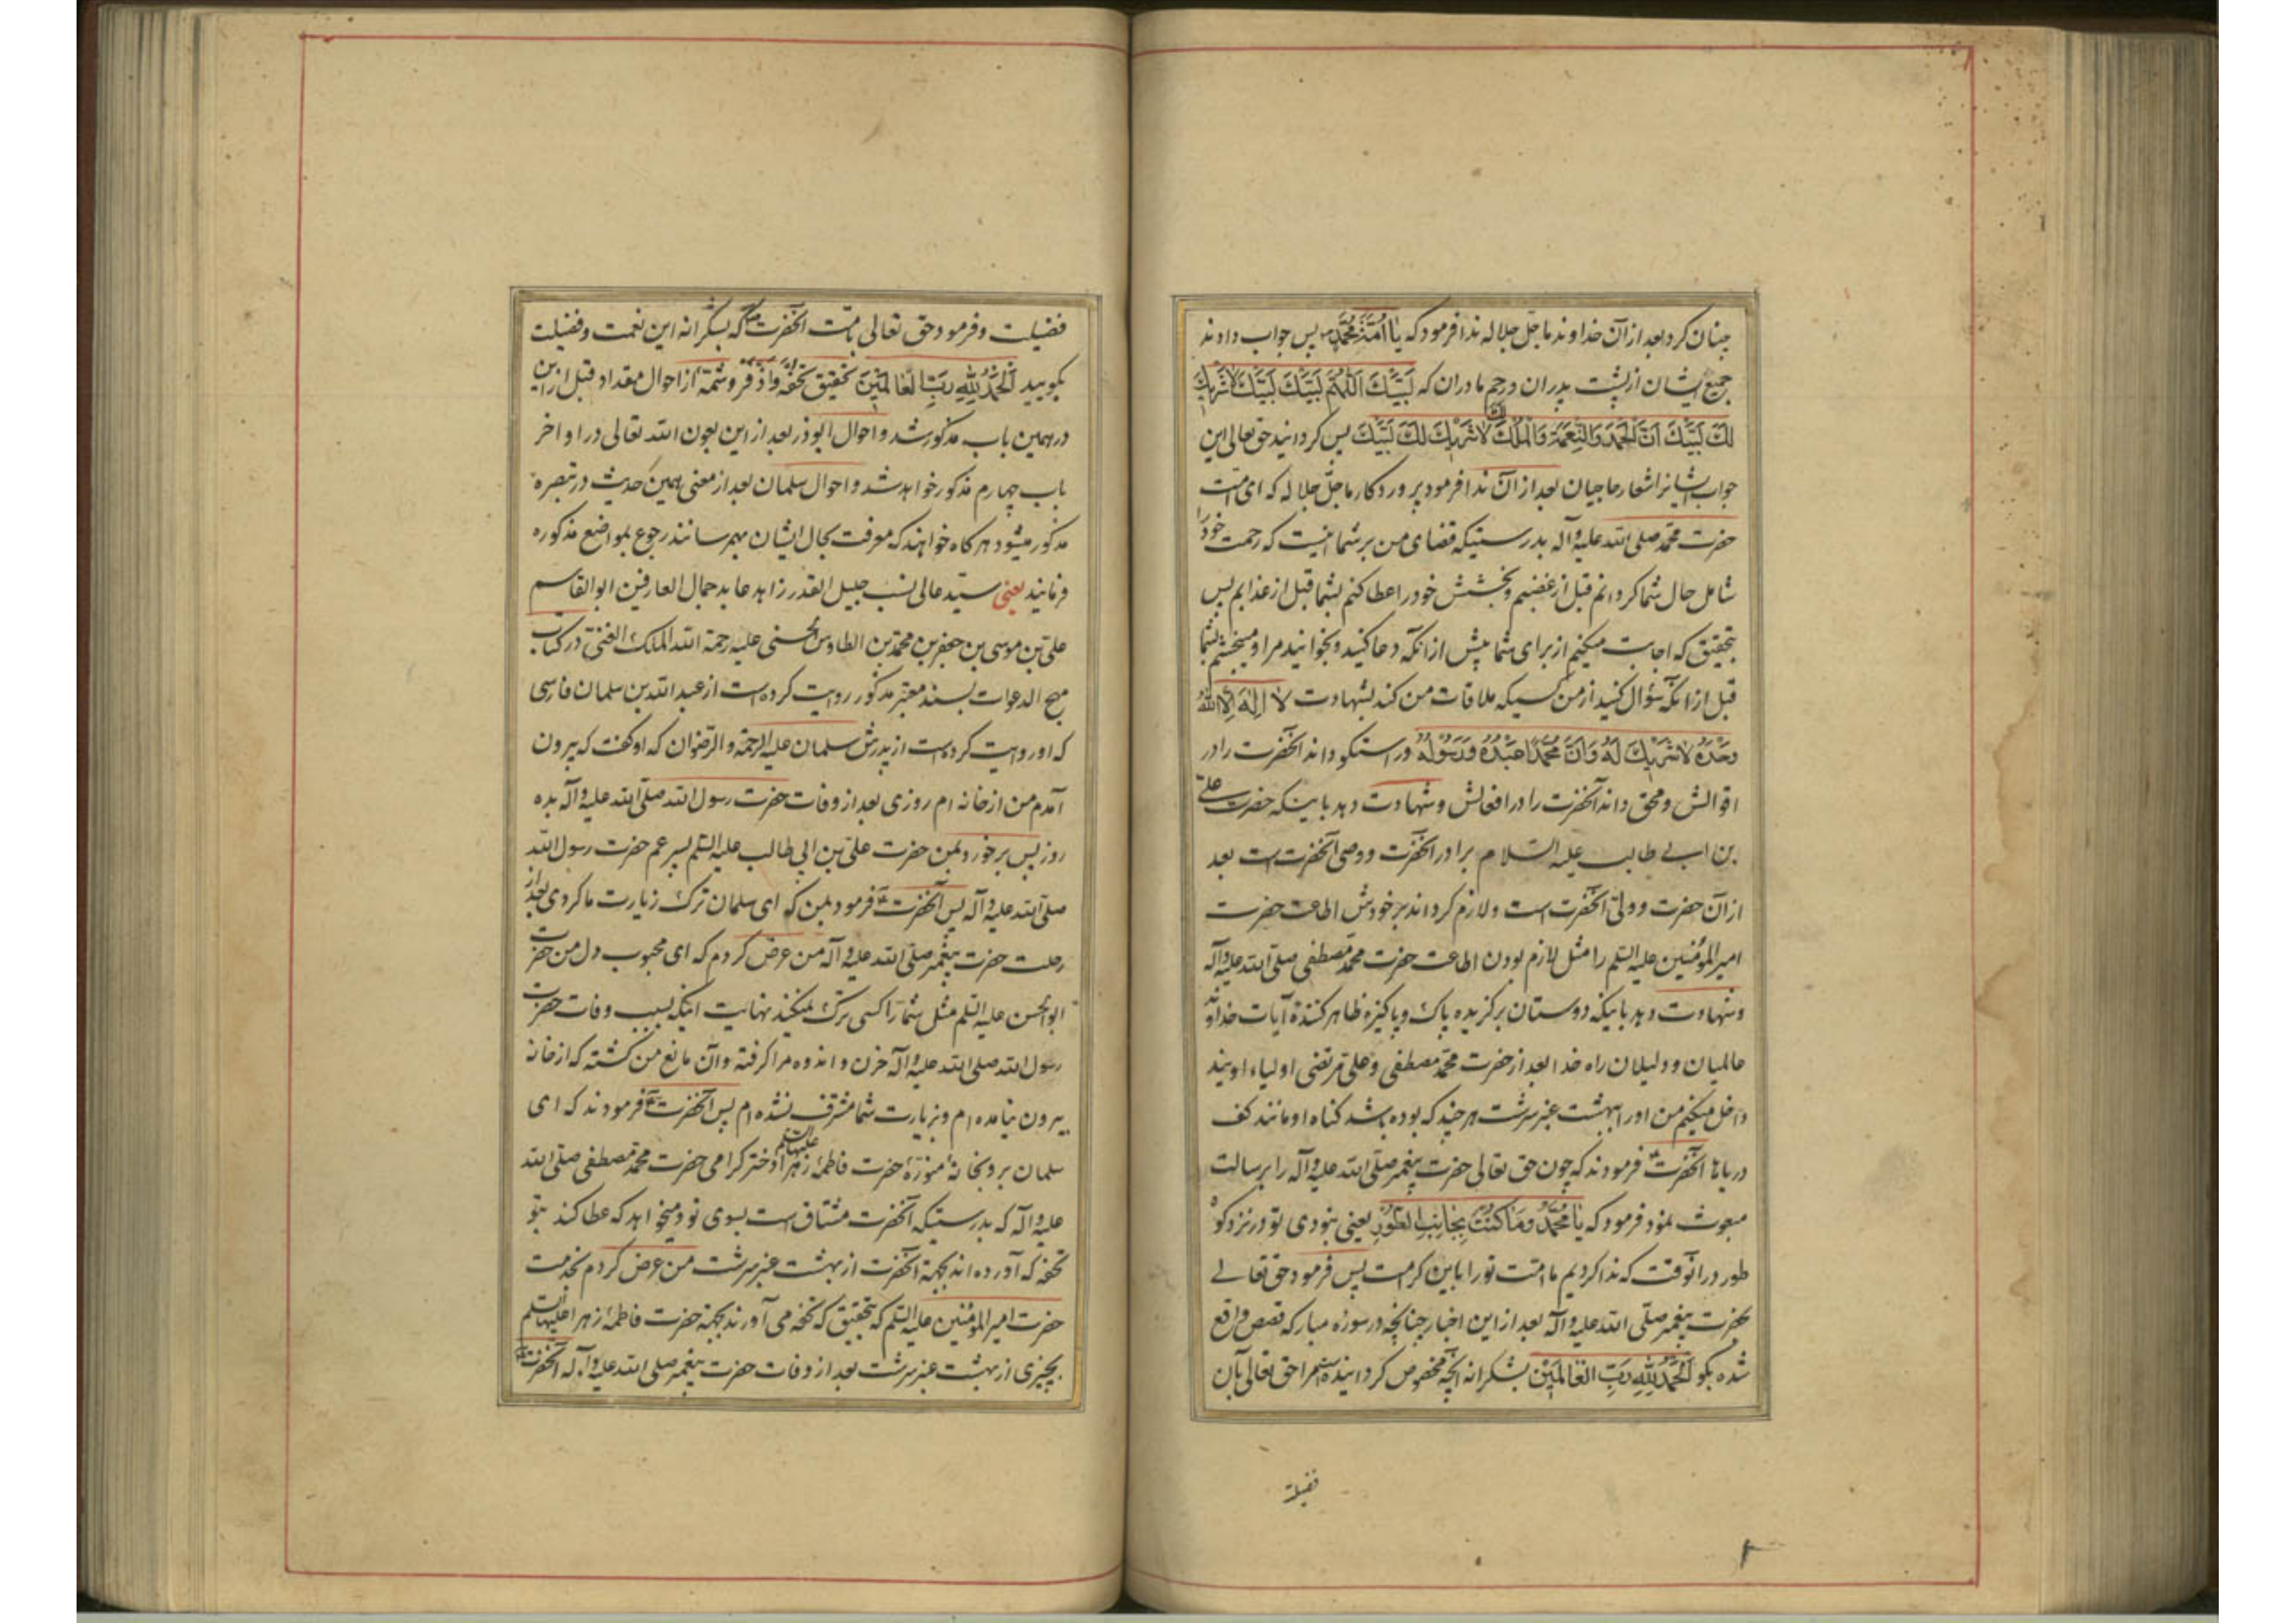 چنان کرد بعد از آن خداوند ما جل جلاله ندا فرمود که یا اُمَّةَ مُحَمَّدٍ پس جواب دادند
جمیع ایشان از پشت پدران و رحم مادران که لَبَّیْكَ اَللّٰهُمَّ لَبَّیْكَ لَبَّیْكَ لاٰ شَرِیكَ
لَكَ لَبَّیْكَ اَنَّ الْحَمْدَ وَالنِّعْمَةَ وَالْمُلْكَ لَكَ لاٰ شَرِیكَ لَكَ لَبَّیْكَ پس کردانید حق تعالی این
جواب ایشانرا شعار حاجیان بعد از آن ندا فرمود پروردکار ما جلّ جلاله که ای امت
حضرت محمد صلی الله علیه وآله بدرستیکه قضای من بر شما اینست که رحمت خود را
شامل حال شما کردانم قبل از غضبم و بخشش خود را عطا کنم بشما قبل از عذابم پس
بتحقیق که اجابت میکنم از برای شما پیش از انکه دعا کنید و بخوانید مرا و میبخشم بشما
قبل از انکه سؤال کنید از من کسیکه ملاقات من کند بشهادت لاٰ اِلٰهَ اِلاَّ اللهُ
وَحْدَهُ لاٰ شَرِیكَ لَهُ وَاَنَّ مُحَمَّدًا عَبْدُهُ وَرَسُولُهُ و راستکو داند آنحضرت را در
اقوالش و محق داند آنحضرت را در افعالش و شهادت دهد باینکه حضرت علی
بن ابی طالب علیه السلام برادر آنحضرت و وصی آنحضرت است بعد
از آن حضرت و ولیّ آنحضرت است و لازم کرداند بر خودش اطاعت حضرت
امیر المؤمنین علیه السلم را مثل لازم بودن اطاعت حضرت محمد مصطفی صلی الله علیه وآله
و شهادت دهد باینکه دوستان برکزیده پاک و پاکیزه ظاهر کنندهٔ آیات خداوند
عالمیان و دلیلان راه خدا بعد از حضرت محمد مصطفی و علی مرتضی اولیاء اویند
داخل میکنم من او را ببهشت عنبر سرشت هر چند که بوده باشد کناه او مانند کف
دریاها آنحضرت فرمودند که چون حق تعالی حضرت پیغمبر صلی الله علیه وآله را برسالت
مبعوث نمود فرمود که یٰا مُحَمَّدُ وَمٰا کُنْتَ بِجٰانِبِ الطُّورِ یعنی نبودی تو در نزد کوه
طور در انوقت که ندا کردیم ما امّت تو را باین کرامت پس فرمود حق تعالی
بحضرت پیغمبر صلی الله علیه وآله بعد از این اخبار چنانچه در سورهٔ مبارکه قصص واقع
شده بکو اَلْحَمْدُ لِلّٰهِ رَبِّ الْعٰالَمِینَ بشکرانه آنچه مخصوص کردانیده مرا حق تعالی بآن
فضیلة
فضیلت و فرمود حق تعالی بامّت آنحضرت که بشکرانه این نعمت و فضیلت
بکویید اَلْحَمْدُ لِلّٰهِ رَبِّ الْعٰالَمِینَ تحقیق تحفه واذفر و شمّهٔ از احوال مقداد قبل از این
در همین باب مذکور شد و احوال ابوذر بعد از این بعون الله تعالی در اواخر
باب چهارم مذکور خواهد شد و احوال سلمان بعد از معنی همین حدیث در تبصره
مذکور میشود هر کاه خواهند که معرفت بحال ایشان بهمرسانند رجوع بمواضع مذکوره
فرمانید یعنی سیّد عالی نسب جلیل القدر زاهد عابد جمال العارفین ابو القاسم
علی بن موسی بن جعفر بن محمد بن الطاوس الحسنی علیه رحمة الله الملک الغنی در کتاب
مهج الدعوات بسند معتبر مذکور روایت کرده است از عبد الله بن سلمان فارسی
که او روایت کرده است از پدرش سلمان علیه الرحمة و الرضوان که او کفت که بیرون
آمدم من از خانه ام روزی بعد از وفات حضرت رسول الله صلی الله علیه وآله بده
روز پس برخورد بمن حضرت علی بن ابی طالب علیه السلم پسر عم حضرت رسول الله
صلی الله علیه وآله پس آنحضرت فرمود بمن که ای سلمان ترک زیارت ما کردی بعد از
رحلت حضرت پیغمبر صلی الله علیه وآله من عرض کردم که ای محبوب دل من حضرت
ابو الحسن علیه السلم مثل شما را کسی ترک نمیکند نهایت اینکه بسبب وفات حضرت
رسول الله صلی الله علیه وآله حزن و اندوه مرا کرفته و آن مانع من کشته که از خانه
بیرون نیامده ام و بزیارت شما مشرف نشده ام پس آنحضرت فرمودند که ای
سلمان برو بخانهٔ منورهٔ حضرت فاطمهٔ زهرا علیها السلم دختر کرامی حضرت محمد مصطفی صلی الله
علیه وآله که بدرستیکه آنحضرت مشتاق است بسوی تو و میخواهد که عطا کند بتو
تحفه که آورده اند بجهة آنحضرت از بهشت عنبر سرشت من عرض کردم بخدمت
حضرت امیر المؤمنین علیه السلم که بتحقیق که تحفه می آورند بجهة حضرت فاطمهٔ زهرا علیها السلم
بچیزی از بهشت عنبر سرشت بعد از وفات حضرت پیغمبر صلی الله علیه وآله آنحضرت